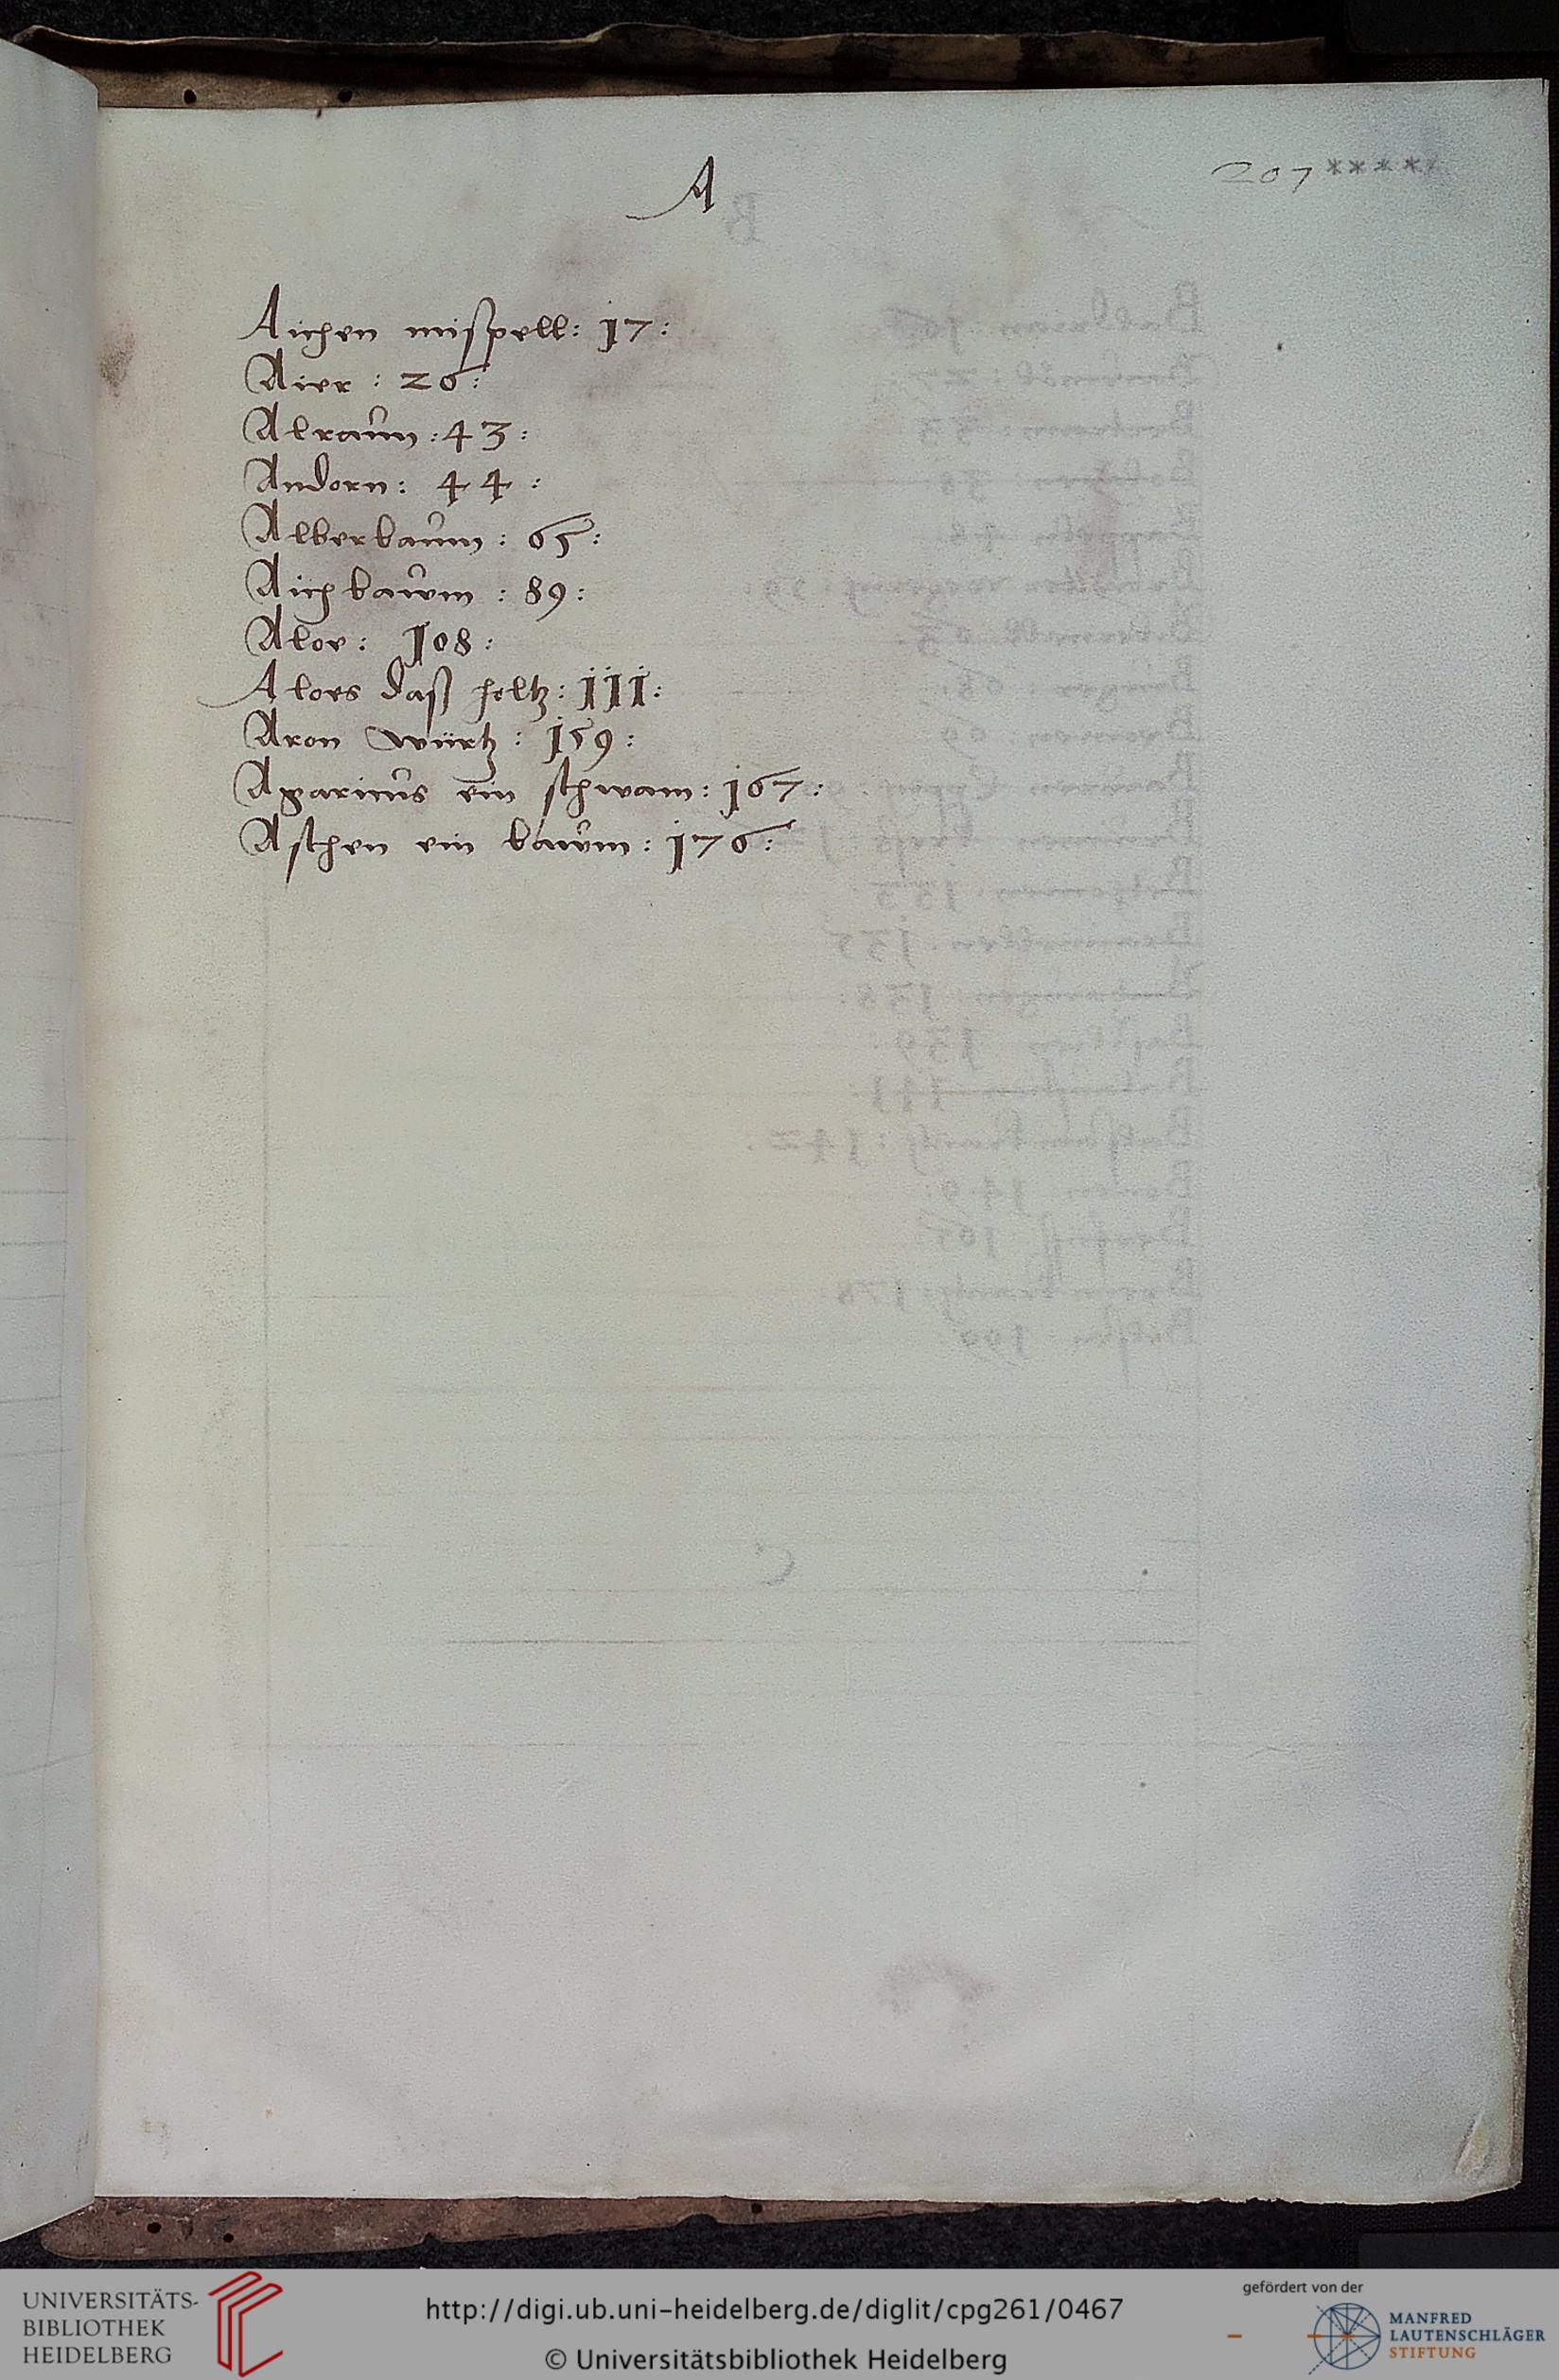 A
207*****
Aichen mißpell: 17:
Aier: 26:
Alraun: 43:
Andorn: 44:
Alberbaum: 65:
Aichbawm: 89:
Aloe: 108:
Aloes daß holtz: 111:
Aron würtz: 159:
Agaricus ein schwam: 167:
Aschen ein bawm: 176:
UNIVERSITÄTS-
BIBLIOTHEK
HEIDELBERG
http://digi.ub.uni-heidelberg.de/diglit/cpg261/0467
© Universitätsbibliothek Heidelberg
gefördert von der
MANFRED
LAUTENSCHLÄGER
STIFTUNG